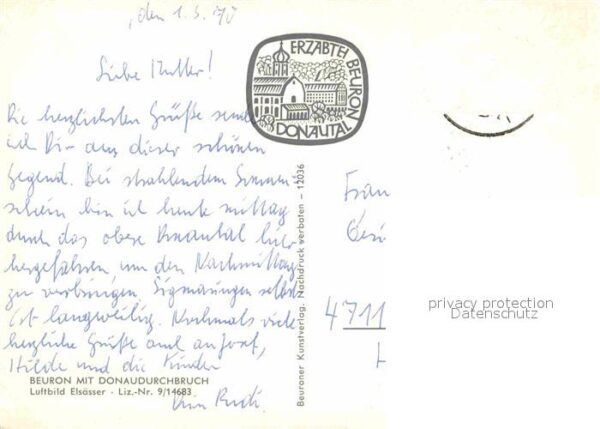 , den 1.5.70
Liebe Mutter!
Die herzlichsten Grüße sende
ich Dir aus dieser schönen
Gegend. Bei strahlendem Sonnen-
schein bin ich heute mittag
durch das obere Donautal hier-
hergefahren, um den Nachmittag
zu verbringen. Sigmaringen selbst
ist langweilig. Nochmals viele
herzliche Grüße auch an
Hilde und die Kinder
BEURON MIT DONAUDURCHBRUCH
Luftbild Elsässer - Liz.-Nr. 9/14683
ERZABTEI BEURON
DONAUTAL
Beuroner Kunstverlag. Nachdruck verboten - 12036
Frau
4711
privacy protection
Datenschutz